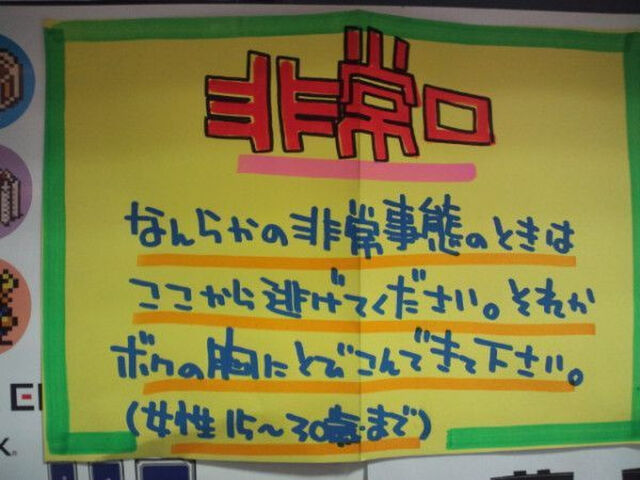 非常口
なんらかの非常事態のときは
ここから逃げてください。それか
ボクの胸にとびこんできて下さい。
(女性15〜30歳まで)